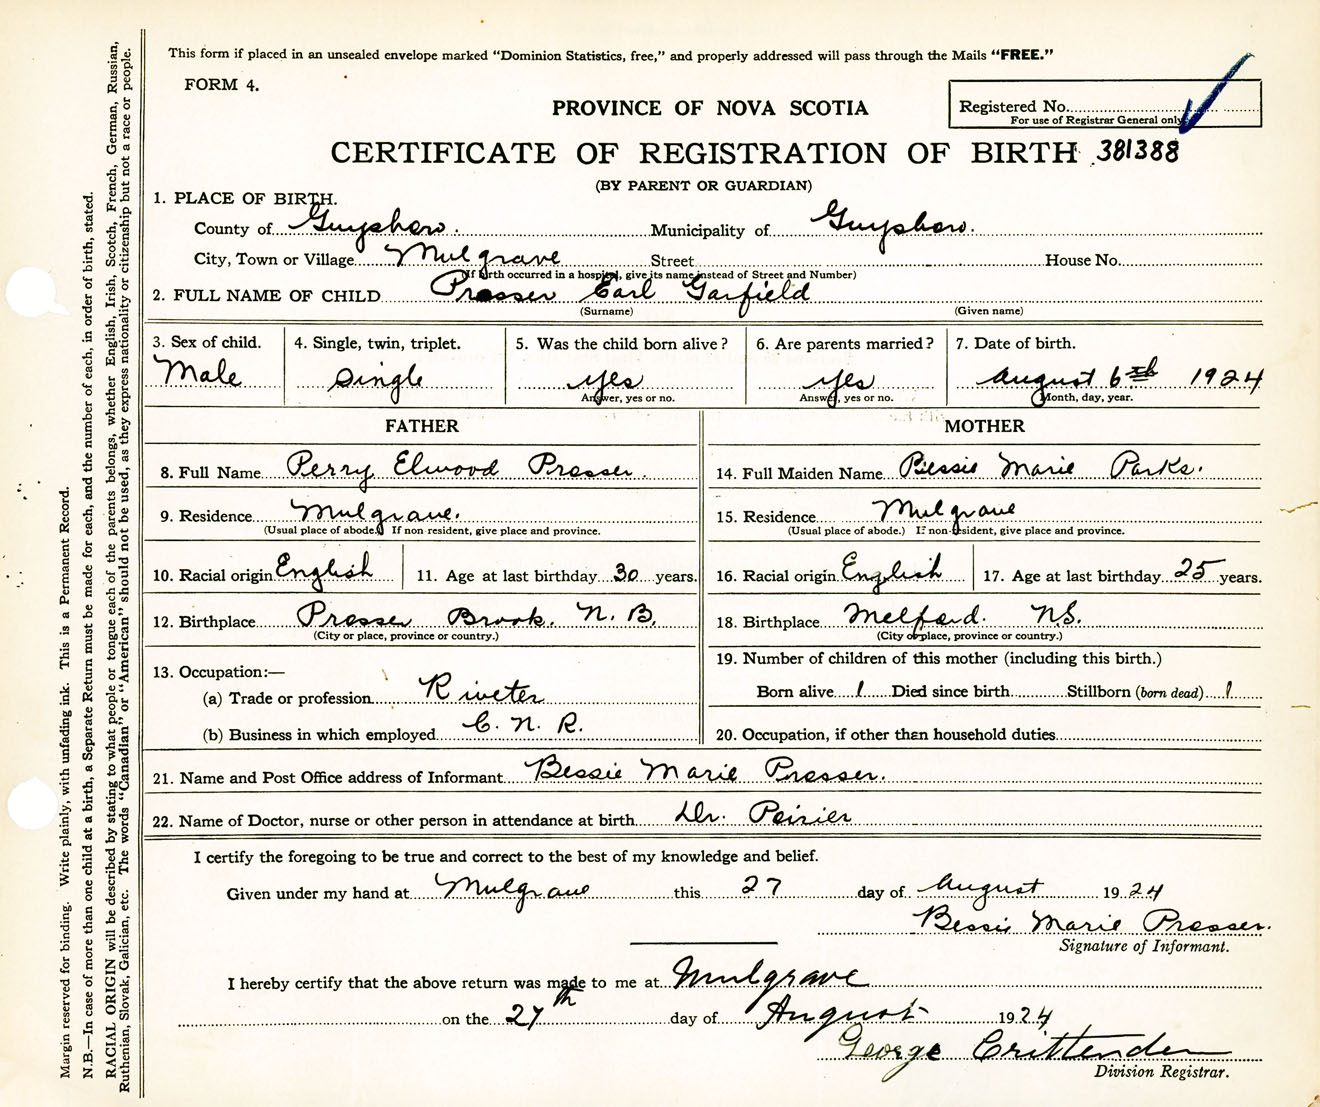 This form if placed in an unsealed envelope marked "Dominion Statistics, free," and properly addressed will pass through the Mails "FREE."
FORM 4.
PROVINCE OF NOVA SCOTIA
Registered No.
For use of Registrar General only
CERTIFICATE OF REGISTRATION OF BIRTH 381388
(BY PARENT OR GUARDIAN)
1. PLACE OF BIRTH.
County of Guysboro. Municipality of Guysboro.
City, Town or Village Mulgrave Street House No.
(If birth occurred in a hospital, give its name instead of Street and Number)
2. FULL NAME OF CHILD Prosser Earl Garfield
(Surname) (Given name)
3. Sex of child. 4. Single, twin, triplet. 5. Was the child born alive? 6. Are parents married? 7. Date of birth.
Male Single yes yes August 6th 1924
Answer, yes or no. Answer, yes or no. Month, day, year.
FATHER MOTHER
8. Full Name Perry Elwood Prosser. 14. Full Maiden Name Bessie Marie Parks.
9. Residence Mulgrave. 15. Residence Mulgrave
(Usual place of abode.) If non-resident, give place and province. (Usual place of abode.) If non-resident, give place and province.
10. Racial origin English 11. Age at last birthday 30 years. 16. Racial origin English 17. Age at last birthday 25 years.
12. Birthplace Prosser Brook. N. B. 18. Birthplace Melford. N.S.
(City or place, province or country.) (City or place, province or country.)
13. Occupation:— 19. Number of children of this mother (including this birth.)
(a) Trade or profession Riveter Born alive 1 Died since birth Stillborn (born dead) 1
(b) Business in which employed C. N. R. 20. Occupation, if other than household duties
21. Name and Post Office address of Informant Bessie Marie Prosser.
22. Name of Doctor, nurse or other person in attendance at birth Dr. Poirier
I certify the foregoing to be true and correct to the best of my knowledge and belief.
Given under my hand at Mulgrave this 27 day of August 1924
Bessie Marie Prosser.
Signature of Informant.
I hereby certify that the above return was made to me at Mulgrave
on the 27th day of August 1924
George Crittenden
Division Registrar.
Margin reserved for binding. Write plainly, with unfading ink. This is a Permanent Record.
N.B.—In case of more than one child at a birth, a Separate Return must be made for each, and the number of each, in order of birth, stated.
RACIAL ORIGIN will be described by stating to what people or tongue each of the parents belongs, whether English, Irish, Scotch, French, German, Russian,
Ruthenian, Slovak, Galician, etc. The words "Canadian" or "American" should not be used, as they express nationality or citizenship but not a race or people.